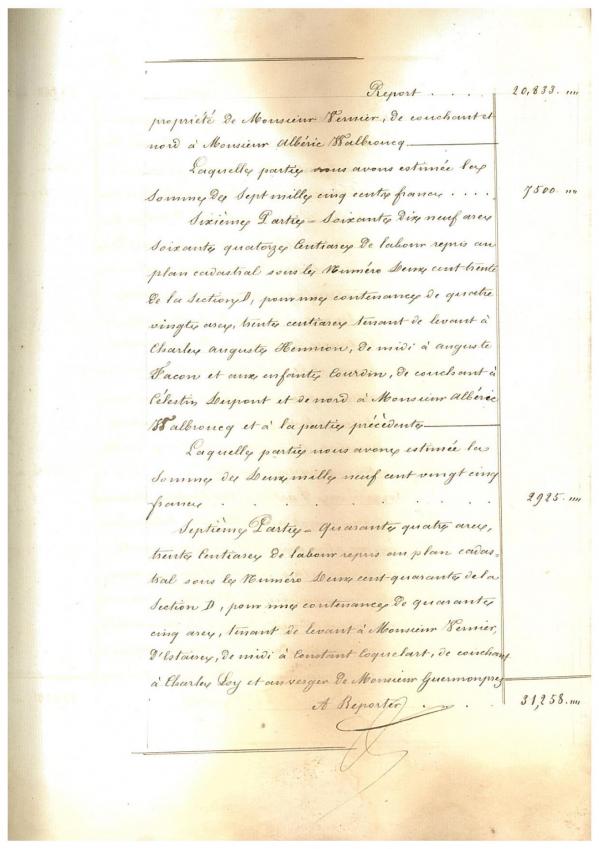 Report . . . . 20,833. "
propriété de Monsieur Vernier, de couchant et
nord à Monsieur Albéric Walbroucq
Laquelle partie nous avons estimée la
Somme de Sept mille cinq cents francs . . . . 7500 "
Sixième Partie = Soixante dix neuf ares
Soixante quatorze Centiares de labour repris au
plan cadastral sous le Numéro Deux cent trente
de la Section D, pour une contenance de quatre
vingts ares, trente centiares tenant de levant à
Charles Auguste Hennion, de midi à Auguste
Facon et aux enfants Courdin, de couchant à
Célestin Dupont et de nord à Monsieur Albéric
Walbroucq et à la partie précédente
Laquelle partie nous avons estimée la
Somme de Deux mille neuf cent vingt cinq
francs . . . . . . . 2925. "
Septième Partie = Quarante quatre ares,
trente Centiares de labour repris au plan cadas=
tral sous le Numéro Deux cent quarante de la
Section D, pour une contenance de quarante
cinq ares, tenant de levant à Monsieur Vernier,
D'Estaires, de midi à Constant Coquelart, de couchant
à Charles Loy et au verger de Monsieur Guermonprez
A Reporter . . . 31,258. "